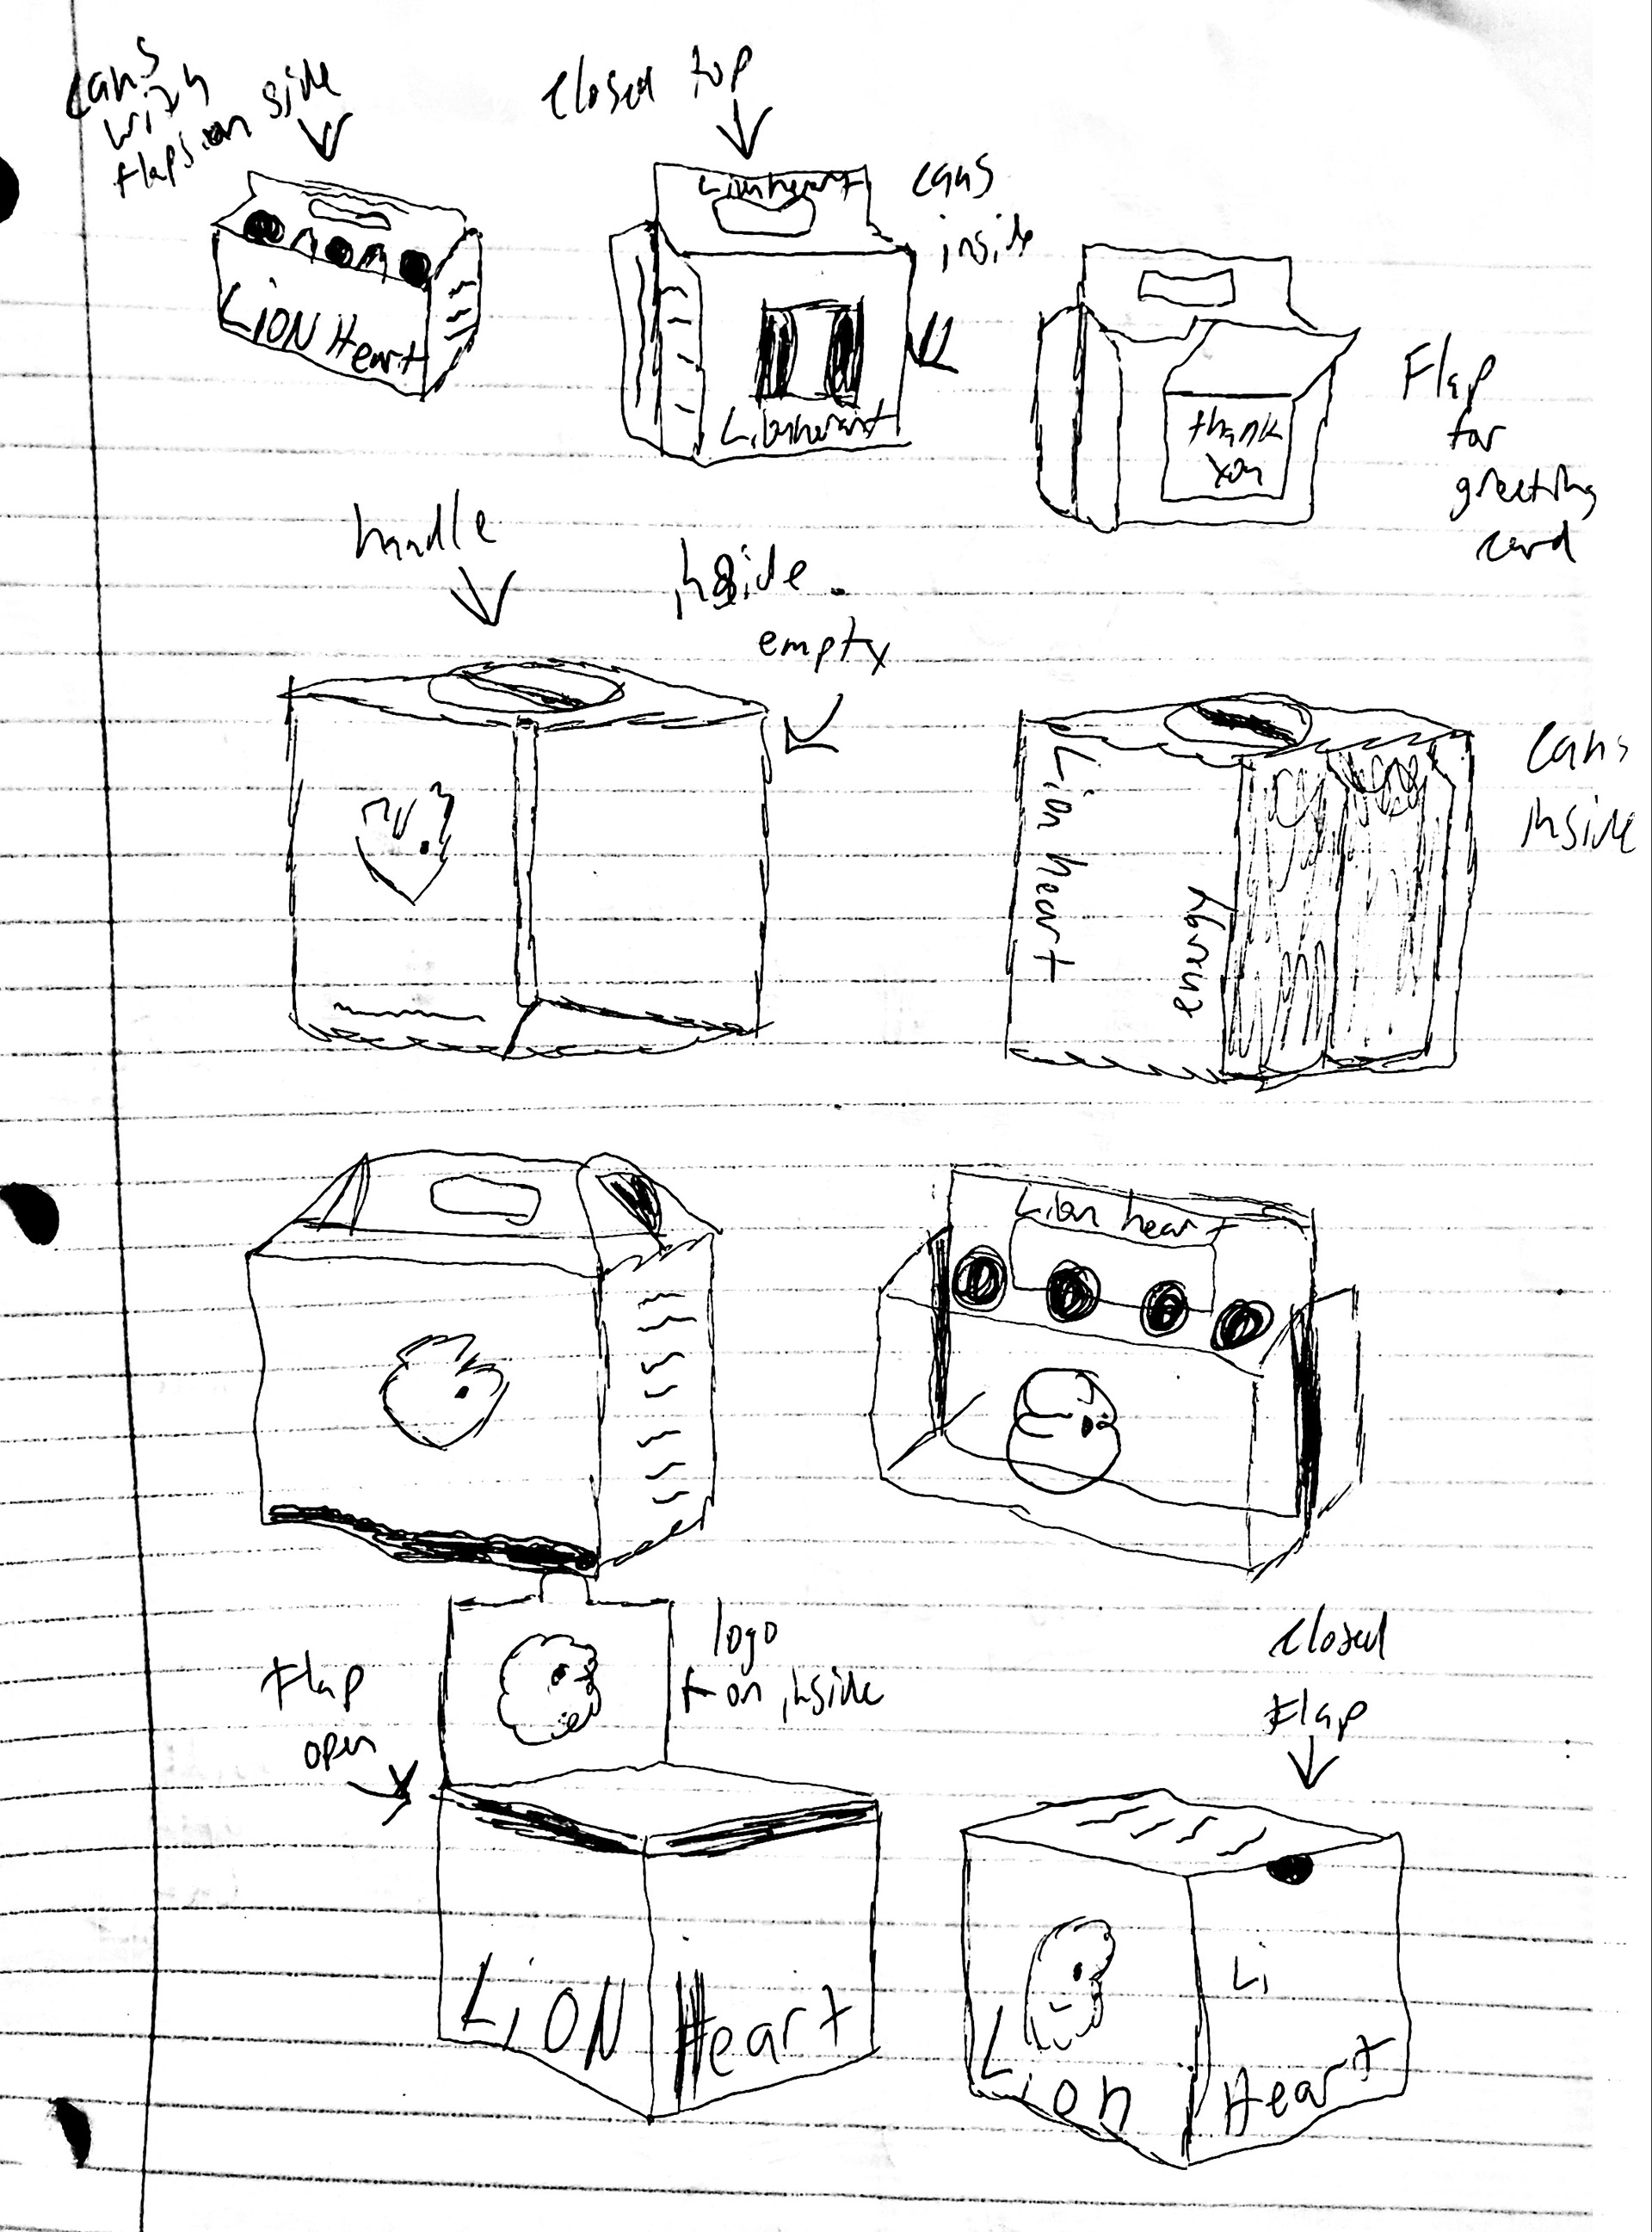 cans
with
flaps on side
closed top
Lionheart
cans
inside
LiON Heart
Lionheart
thank
you
Flap
for
greeting
card
handle
inside
empty
Lion heart
energy
cans
inside
Lion heart
Flap
open
logo
on inside
closed
Flap
LiON Heart
Li
Lion Heart